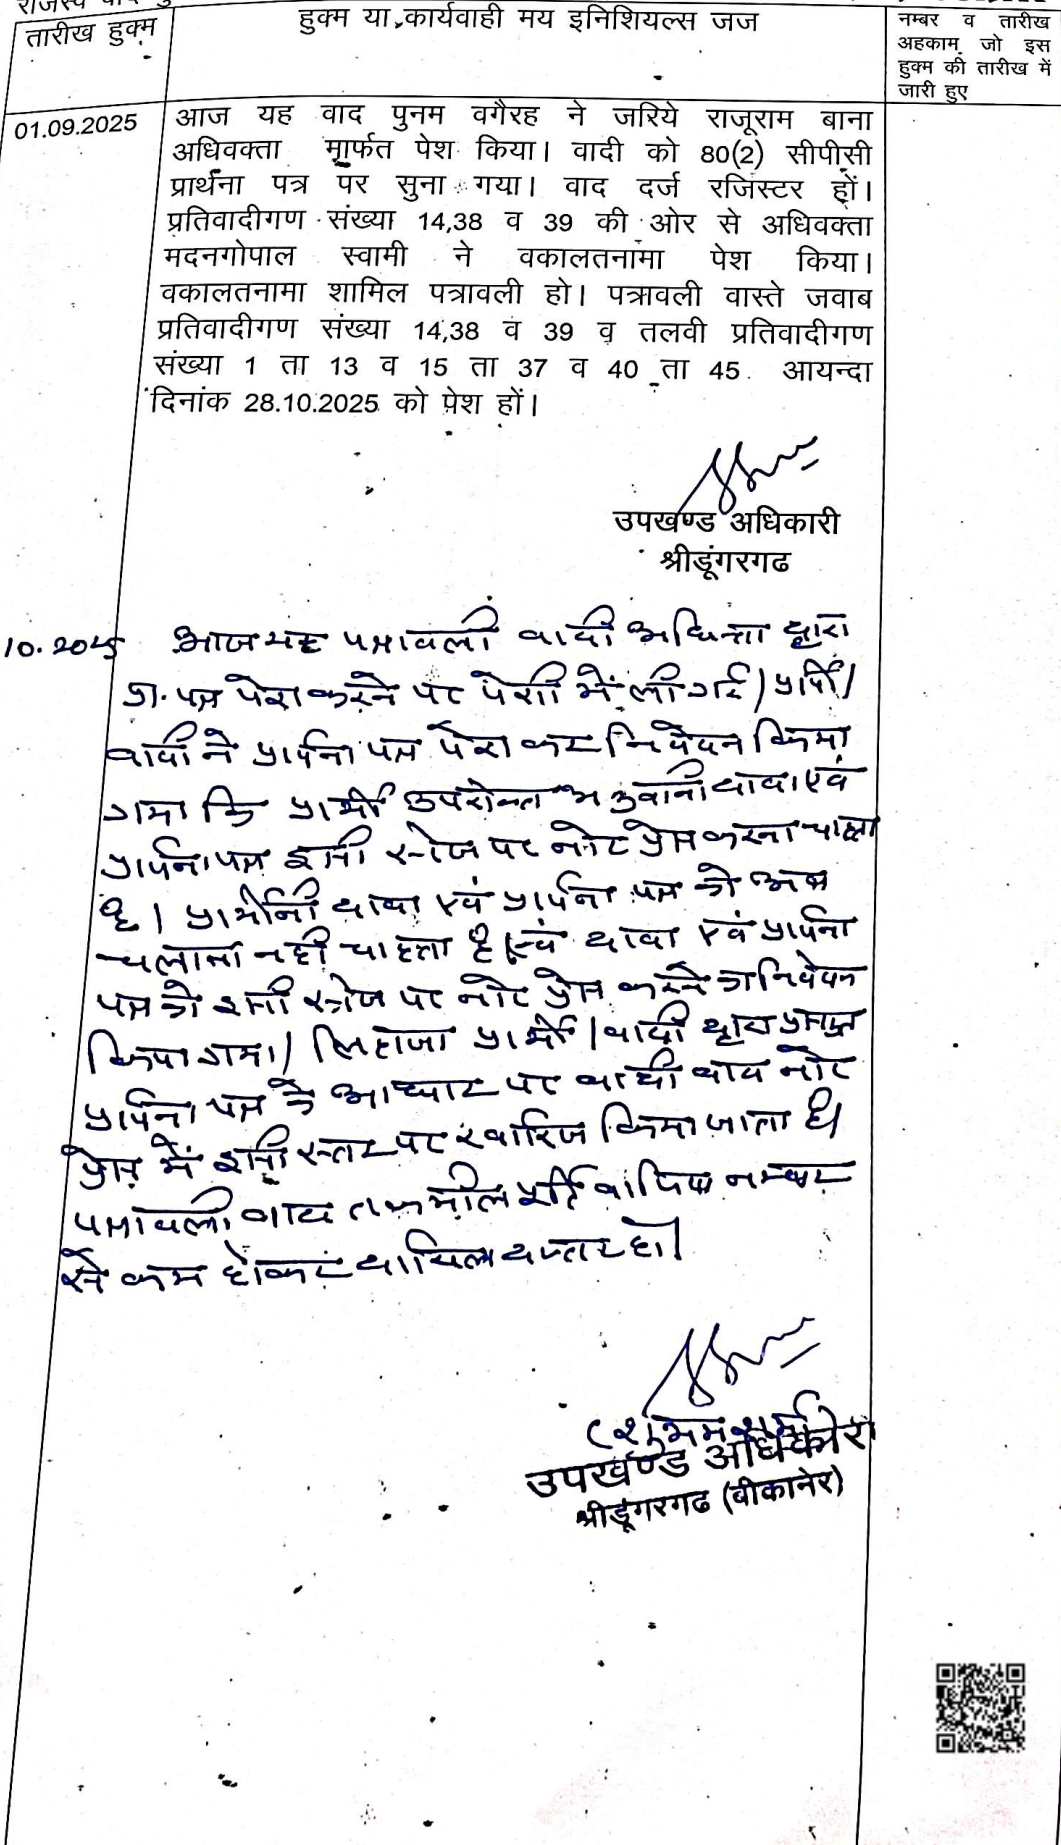 राजस्व वाद
तारीख हुक्म
हुक्म या कार्यवाही मय इनिशियल्स जज
नम्बर व तारीख
अहकाम जो इस
हुक्म की तारीख में
जारी हुए
01.09.2025
आज यह वाद पुनम वगैरह ने जरिये राजूराम बाना
अधिवक्ता मार्फत पेश किया। वादी को 80(2) सीपीसी
प्रार्थना पत्र पर सुना गया। वाद दर्ज रजिस्टर हों।
प्रतिवादीगण संख्या 14,38 व 39 की ओर से अधिवक्ता
मदनगोपाल स्वामी ने वकालतनामा पेश किया।
वकालतनामा शामिल पत्रावली हो। पत्रावली वास्ते जवाब
प्रतिवादीगण संख्या 14,38 व 39 व तलवी प्रतिवादीगण
संख्या 1 ता 13 व 15 ता 37 व 40 ता 45. आयन्दा
दिनांक 28.10.2025 को पेश हों।
उपखण्ड अधिकारी
श्रीडूंगरगढ
10.2025 आज यह पत्रावली वादी अधिवक्ता द्वारा
प्रा. पत्र पेश करने पर पेशी में ली गई। प्रार्थी/
वादी ने प्रार्थना पत्र पेश कर निवेदन किया
गया कि प्रार्थी उपरोक्त अनुवानी दावा एवं
प्रार्थना पत्र इसी स्टेज पर नोट प्रेस करना चाहता
है। प्रार्थी दावा एवं प्रार्थना पत्र को अब
चलाना नही चाहता है एवं दावा एवं प्रार्थना
पत्र को इसी स्टेज पर नोट प्रेस करने का निवेदन
किया गया। लिहाजा प्रार्थी/वादी द्वारा प्रस्तुत
प्रार्थना पत्र के आधार पर वादी वाद नोट
प्रेस में इसी स्तर पर खारिज किया जाता है।
पत्रावली बाद तकमील नम्बर
से कम होकर दाखिल दफ्तर हो।
(शुभम शर्मा)
उपखण्ड अधिकारी
श्रीडूंगरगढ (बीकानेर)